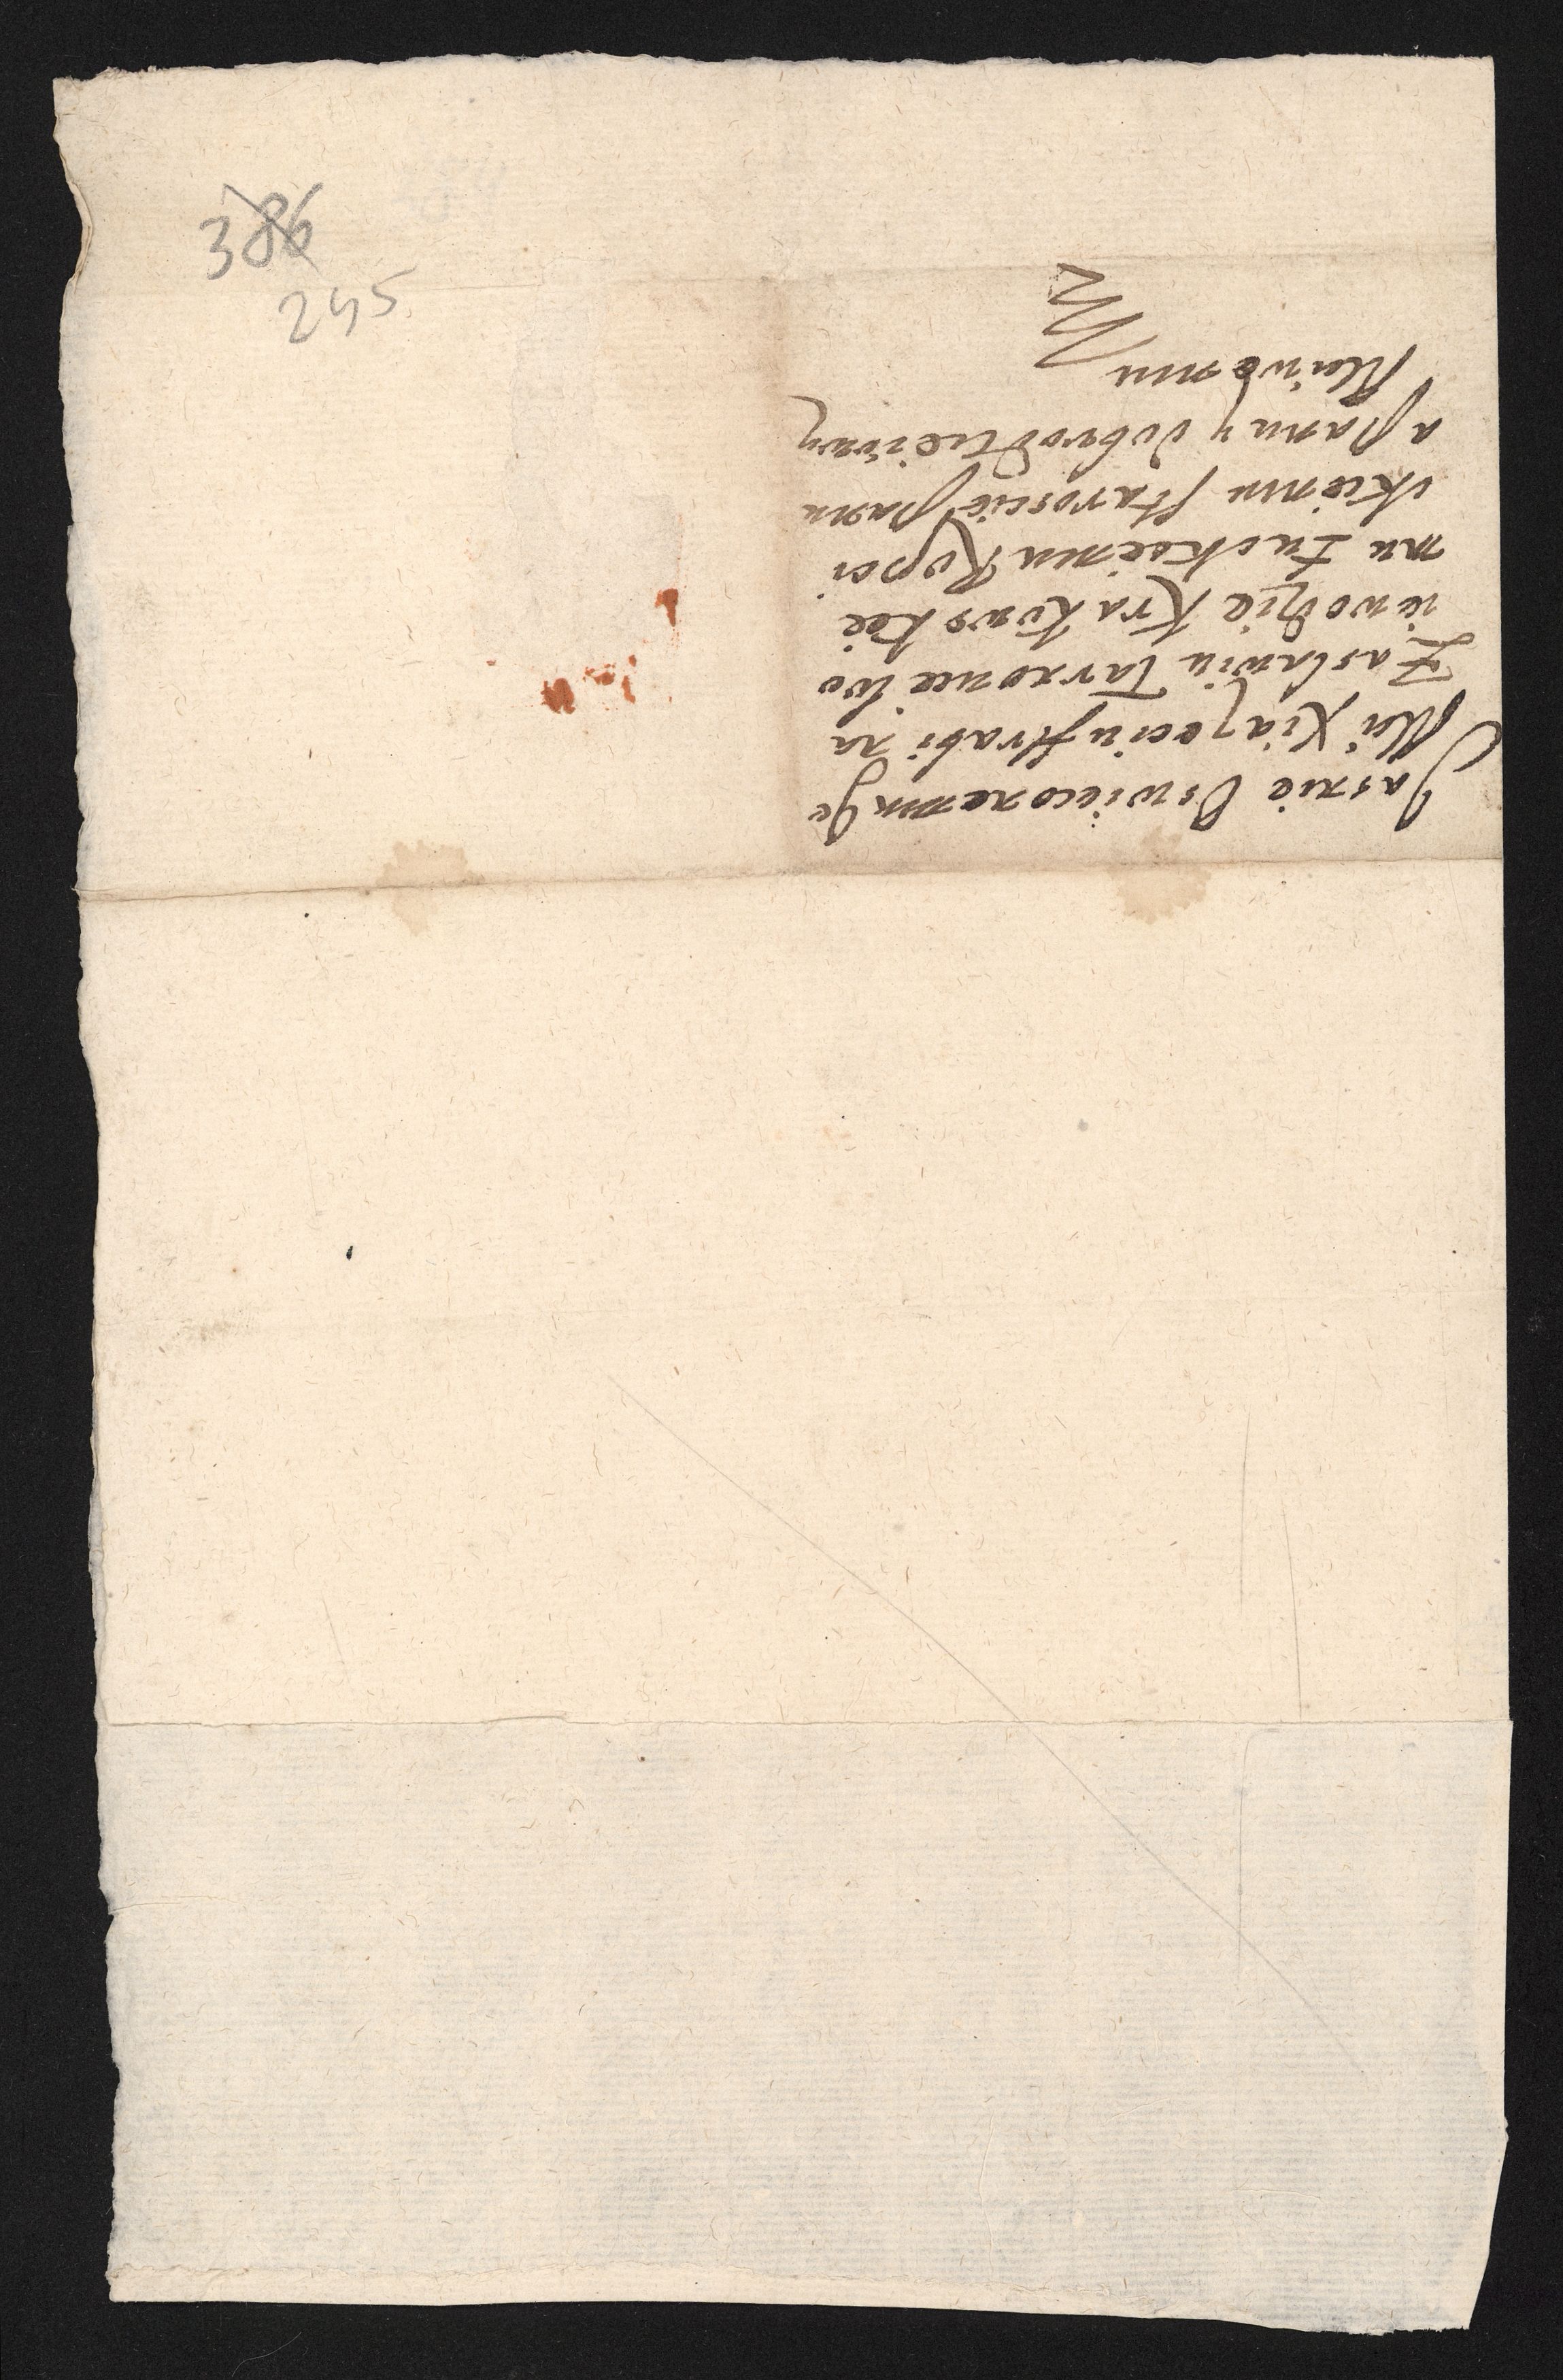 386
245
Jasnie Oswieconemu Je
Mci Xiązęciu Hrabi na
Zaslawiu Tarnowie Wo
iewodzie Krakowskie
mu Łuckiemu Ropci
ckiemu Staroscie Panu
a Panu y dobrodzieiowy
Mciwemu